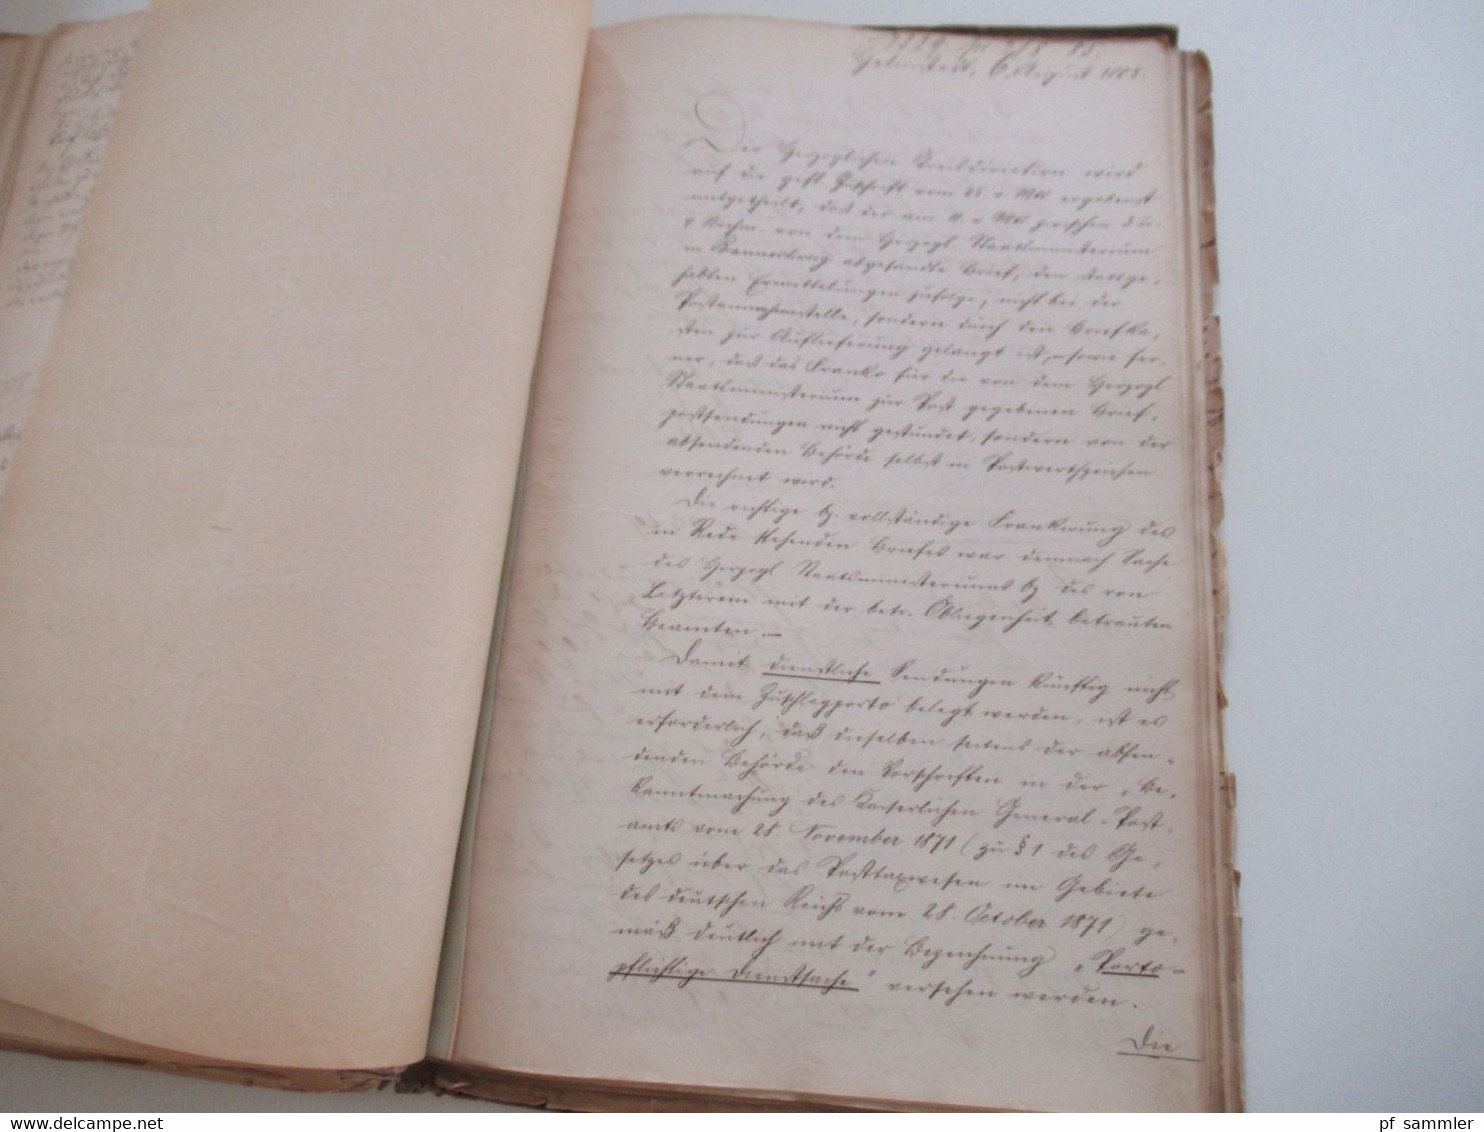 6. August 188
Der Herzoglichen wird
auf die gefl. Zuschrift vom 25. v. Mts. ergebenst
mitgetheilt, daß der am v. Mts. zwischen 3 u.
Nachm. von dem Herzogl. Staatsministerium
in abgesandte Brief, den stattge-
habten Ermittelungen zufolge, nicht bei der
Postannahmestelle, sondern durch den Briefka-
sten zur Auflieferung gelangt ist, sowie fer-
ner, daß das Franko für die von dem Herzogl.
Staatsministerium zur Post gegebenen Brief-
postsendungen nicht gestundet, sondern von der
absendenden Behörde selbst in Postwerthzeichen
verrechnet wird.
Die richtige bz. vollständige Frankirung des
in Rede stehenden Briefes war demnach Sache
des Herzogl. Staatsministeriums bz. des von
Letzterem mit der betr. Obliegenheit betrauten
Beamten. —
Damit dienstliche Sendungen künftig nicht
mit dem Zuschlagporto belegt werden, ist es
erforderlich, daß dieselben seitens der absen-
denden Behörde den Vorschriften in der „Be-
kanntmachung des Kaiserlichen General-Post-
amts vom 28. November 1871 (zu § 1 des Ge-
setzes über das Posttaxwesen im Gebiete
des deutschen Reichs vom 28. October 1871) ge-
mäß deutlich mit der Bezeichnung „Porto-
pflichtige Dienstsache“ versehen werden.
Die
pf_sammler
www.delcampe.net